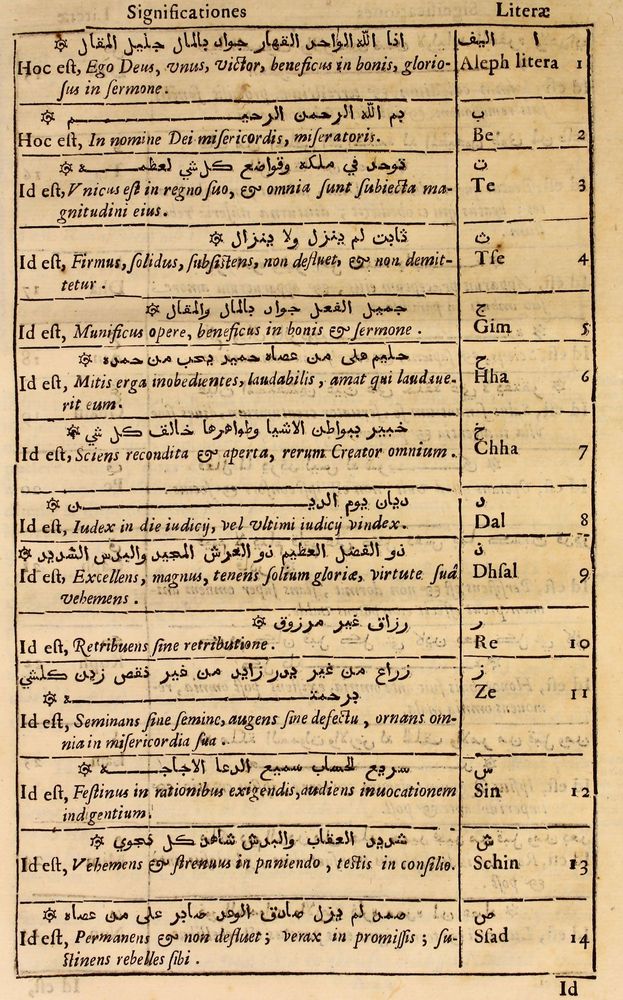 Significationes Literæ
انا الله الواحد القهار جواد بالمال جليل المقال ا اليف
Hoc est, Ego Deus, vnus, victor, beneficus in bonis, glorio- Aleph litera 1
sus in sermone.
بم الله الرحمن الرحيم ب
Hoc est, In nomine Dei misericordis, miseratoris. Be 2
توحد في ملكه وتواضع كل شي لعظمه ت
Id est, Vnicus est in regno suo, & omnia sunt subiecta ma- Te 3
gnitudini eius.
ثابت لم ينزل ولا ينزال ث
Id est, Firmus, solidus, subsistens, non defluet, & non demit- Tse 4
tetur.
جميل الفعل جواد بالمال والمقال ج
Id est, Munificus opere, beneficus in bonis & sermone. Gim 5
حليم على من عصاه حمير يحب من حمده ح
Id est, Mitis erga inobedientes, laudabilis, amat qui laudaue- Hha 6
rit eum.
خبير ببواطن الاشيا وطواهرها خالف كل شي خ
Id est, Sciens recondita & aperta, rerum Creator omnium. Chha 7
ديان يوم الدين د
Id est, Iudex in die iudicij, vel vltimi iudicij vindex. Dal 8
ذو الفضل العظيم ذو العرش المجيد والبدس الشديد ذ
Id est, Excellens, magnus, tenens solium gloriæ, virtute suâ Dhsal 9
vehemens.
رزاق غير مرزوق ر
Id est, Retribuens sine retributione. Re 10
زراع من غير بدر زايد من غير نقص زين كلشي ز
برحمته Ze 11
Id est, Seminans sine semine, augens sine defectu, ornans om-
nia in misericordia sua.
سريع الحساب سميع الدعا الاجاجه س
Id est, Festinus in rationibus exigendis, audiens inuocationem Sin 12
indigentium.
شديد العقاب والبدش شاهد كل نجوي ش
Id est, Vehemens & strenuus in puniendo, testis in consilio. Schin 13
صمد لم يزل صادق الوعد صابر على من عصاه ص
Id est, Permanens & non defluet; verax in promissis; su- Ssad 14
stinens rebelles sibi.
Id